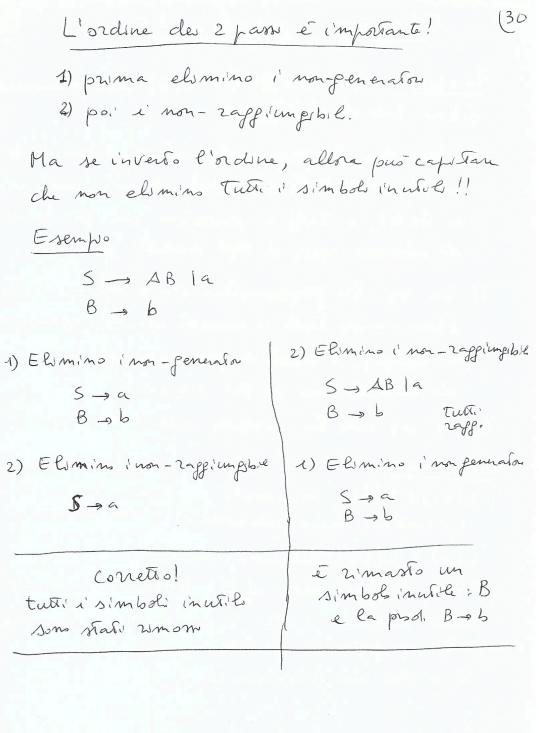 L'ordine dei 2 passi è importante! (30
1) prima elimino i non-generatori
2) poi i non-raggiungibili.
Ma se inverto l'ordine, allora può capitare
che non elimino Tutti i simboli inutili!!
Esempio
S → AB | a
B → b
1) Elimino i non-generatori
S → a
B → b
2) Elimino i non-raggiungibili
S → a
Corretto!
tutti i simboli inutili
sono stati rimossi
2) Elimino i non-raggiungibili
S → AB | a
B → b Tutti
ragg.
1) Elimino i non generatori
S → a
B → b
È rimasto un
simbolo inutile: B
e la prod. B → b